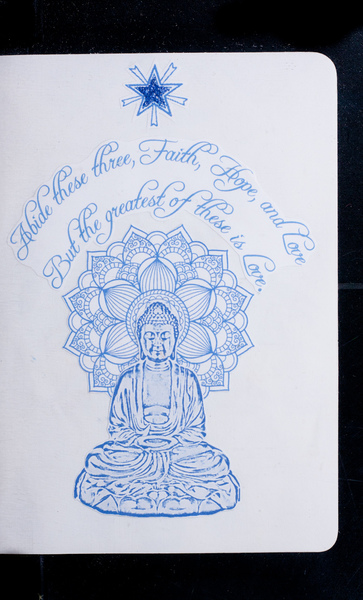 Abide these three, Faith, Hope, and Love
But the greatest of these is Love.